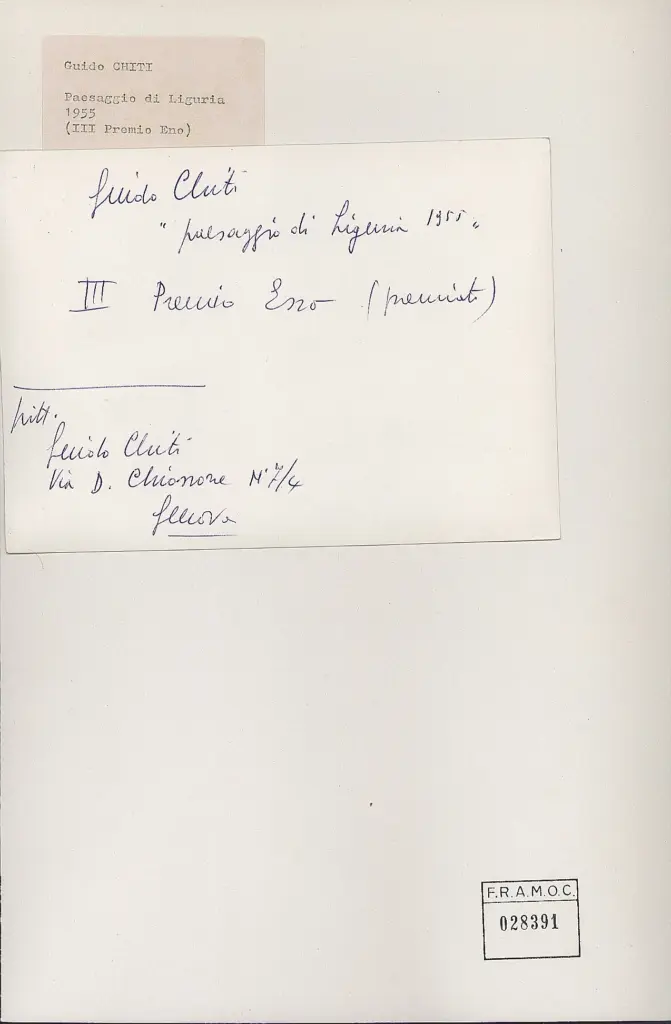 Guido CHITI
Paesaggio di Liguria
1955
(III Premio Eno)
Guido Chiti
"paesaggio di Liguria 1955"
III Premio Esso (premiati)
pitt.
Guido Chiti
Via D. Chiossone N° 7/4
Genova
F.R.A.M.O.C.
028391